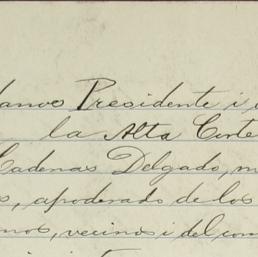 danos Presidente i
la Alta Corte
Cadenas Delgado, m
s, apoderado de los
mos, vecinos i del com